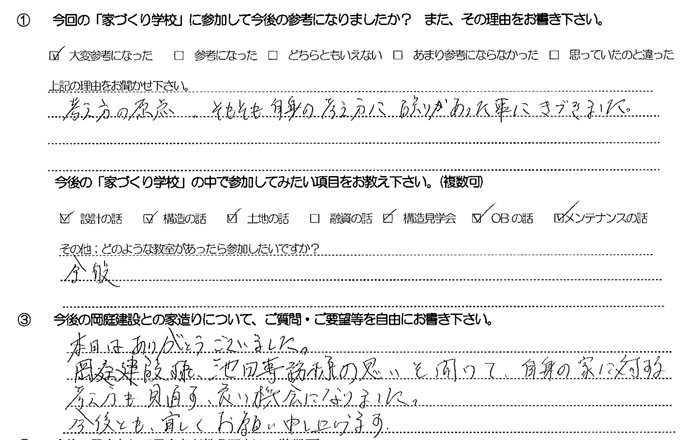 ① 今回の「家づくり学校」に参加して今後の参考になりましたか？ また、その理由をお書き下さい。
☑ 大変参考になった □ 参考になった □ どちらともいえない □ あまり参考にならなかった □ 思っていたのと違った
上記の理由をお聞かせ下さい。
考え方の原点、そもそも自身の考え方に誤りがあった事にきづきました。
今後の「家づくり学校」の中で参加してみたい項目をお教え下さい。(複数可)
☑ 設計の話 ☑ 構造の話 ☑ 土地の話 □ 融資の話 ☑ 構造見学会 ☑ OBの話 ☑メンテナンスの話
その他：どのような教室があったら参加したいですか？
全般
③ 今後の岡庭建設との家造りについて、ご質問・ご要望等を自由にお書き下さい。
本日はありがとうございました。
岡庭建設様、池田専務様の思いを聞けて、自身の家に対する
考え方も見直す、良い機会になりました。
今後とも、宜しくお願い申し上げます.